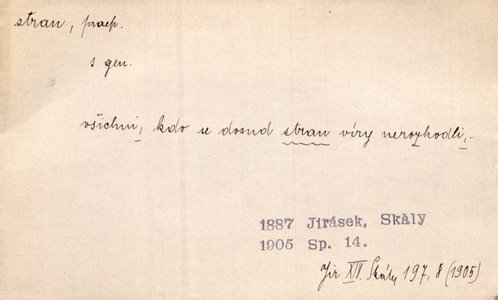 stran, praep.
s gen.
všichni, kdo se dosud stran víry nerozhodli,..
1887 Jirásek, Skàly
1905 Sp. 14.
Jir XIV. Skály 197, 8 (1905)